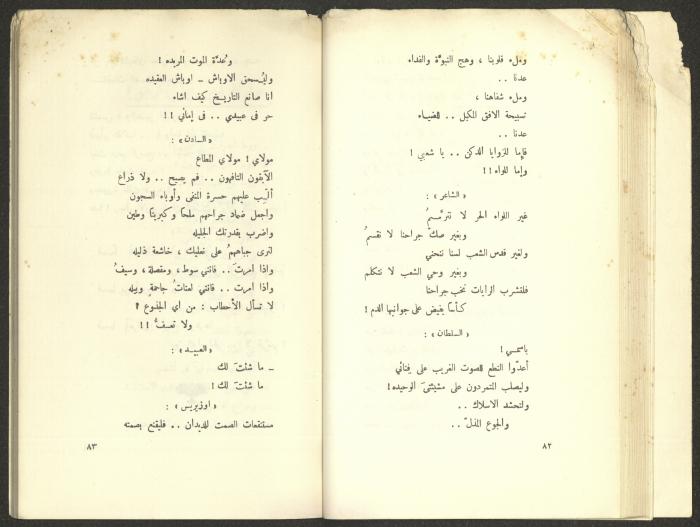 وملء قلوبنا ، وهج النبوّة والفداء
عدنا ..
وملء شفاهنا ،
تسبيحة الافق المكبل .. للضياء
عدنا ..
فإما للزوايا الدكن .. يا شعبي !
وإما للواء !!
« الشاعر » :
غير اللواء الحر لا نترسمُ
وبغير صكّ جراحنا لا نقسمُ
ولغير قدس الشعب لسنا ننحني
وبغير وحي الشعب لا نتكلم
فلتشرب الرايات نخب جراحنا
كأساً يفيض على جوانبها الدم !
« السلطان » :
باسمي !
أعدّوا النطع للصوت الغريب على فنائي
وليصلب المتمردون على مشيئتيَ الوحيده !
ولتحشد الاسلاك ..
والجوع المذلّ ..
٨٢
وعُدّة الموت المربده !
وليُسحق الاوباش - اوباش العقيده
انا صانع التاريخ كيف اشاء
حر في عبيدي .. في إمائي !!
« السادن » :
مولاي ! مولاي المطاع
الآبقون التافهون .. فم يصيح .. ولا ذراع
ألّب عليهم حسرة المنفى وأوباء السجون
واجعل ضماد جراحهم ملحاً وكبريتاً وطين
واضرب بقدرتك الجليله
لترى جباههمُ على نعليك ، خاشعة ذليله
واذا امرتَ .. فانني سوط ، ومقصلة ، وسيفُ
واذا امرت .. فانني لعنات جائحةٍ وبيله
لا تسأل الأحطاب : من أي الجذوع ؟
ولا تعفُّ !!
« العبيد » :
ـ ما شئتَ لك
ما شئتَ لك !
« اوزيريس » :
مستنقعات الصمت للديدان .. فليقنع بصمته
٨٣